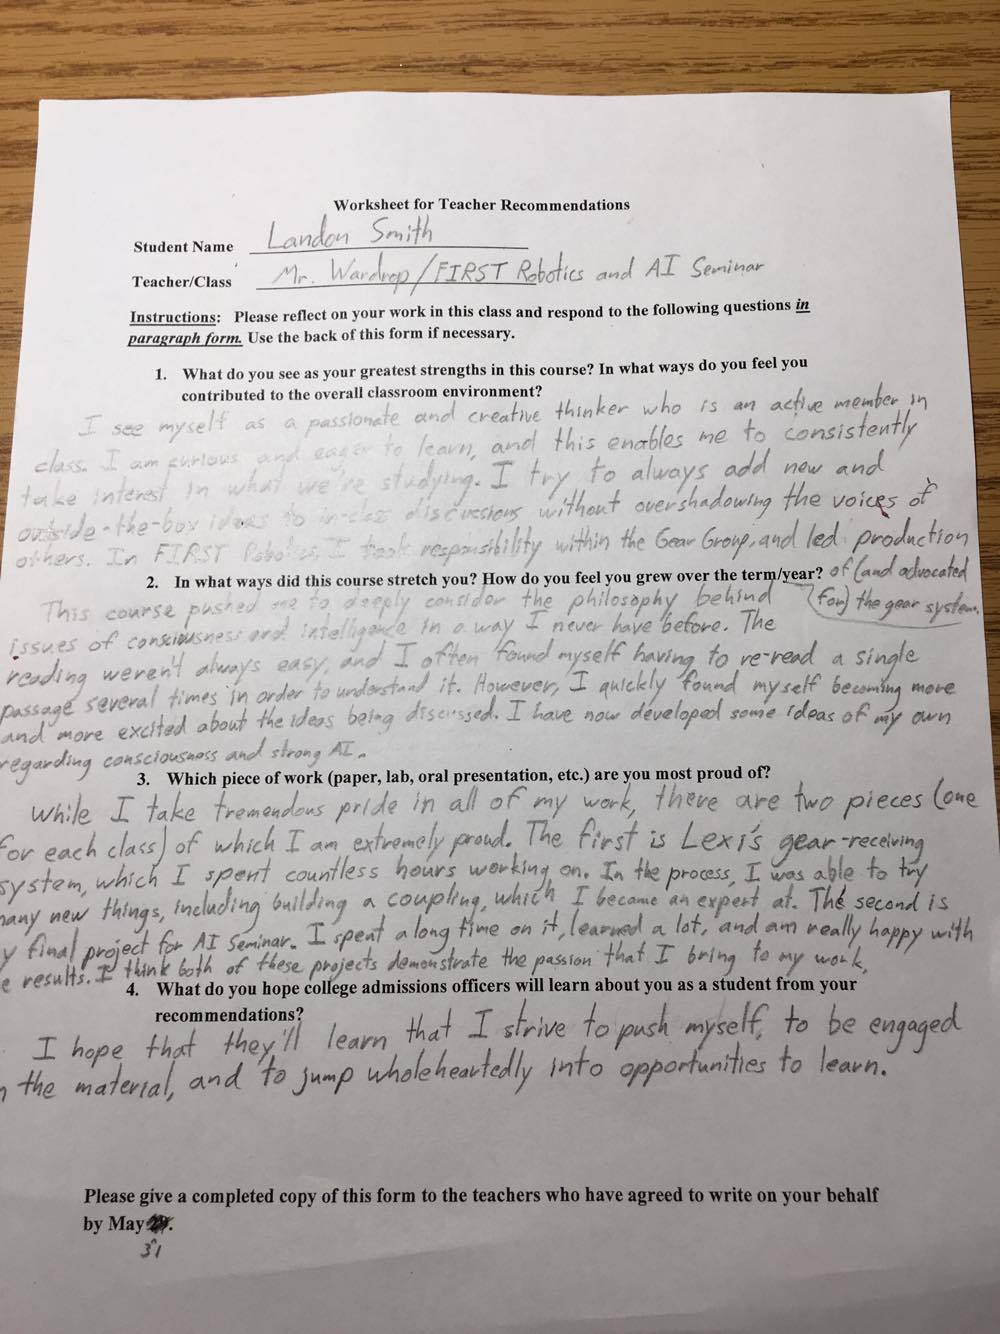 Worksheet for Teacher Recommendations
Student Name Landon Smith
Teacher/Class Mr. Wardrop/FIRST Robotics and AI Seminar
Instructions: Please reflect on your work in this class and respond to the following questions in
paragraph form. Use the back of this form if necessary.
1. What do you see as your greatest strengths in this course? In what ways do you feel you
contributed to the overall classroom environment?
I see myself as a passionate and creative thinker who is an active member in
class. I am curious and eager to learn, and this enables me to consistently
take interest in what we're studying. I try to always add new and
outside-the-box ideas to in-class discussions without overshadowing the voices of
others. In FIRST Robotics, I took responsibility within the Gear Group, and led production
of (and advocated
for) the gear system.
2. In what ways did this course stretch you? How do you feel you grew over the term/year?
This course pushed me to deeply consider the philosophy behind
issues of consciousness and intelligence in a way I never have before. The
reading weren't always easy, and I often found myself having to re-read a single
passage several times in order to understand it. However, I quickly found myself becoming more
and more excited about the ideas being discussed. I have now developed some ideas of my own
regarding consciousness and strong AI.
3. Which piece of work (paper, lab, oral presentation, etc.) are you most proud of?
While I take tremendous pride in all of my work, there are two pieces (one
for each class) of which I am extremely proud. The first is Lexi's gear-receiving
system, which I spent countless hours working on. In the process, I was able to try
many new things, including building a coupling, which I became an expert at. The second is
y final project for AI Seminar. I spent a long time on it, learned a lot, and am really happy with
e results. I think both of these projects demonstrate the passion that I bring to my work.
4. What do you hope college admissions officers will learn about you as a student from your
recommendations?
I hope that they'll learn that I strive to push myself, to be engaged
n the material, and to jump wholeheartedly into opportunities to learn.
Please give a completed copy of this form to the teachers who have agreed to write on your behalf
by May .
31